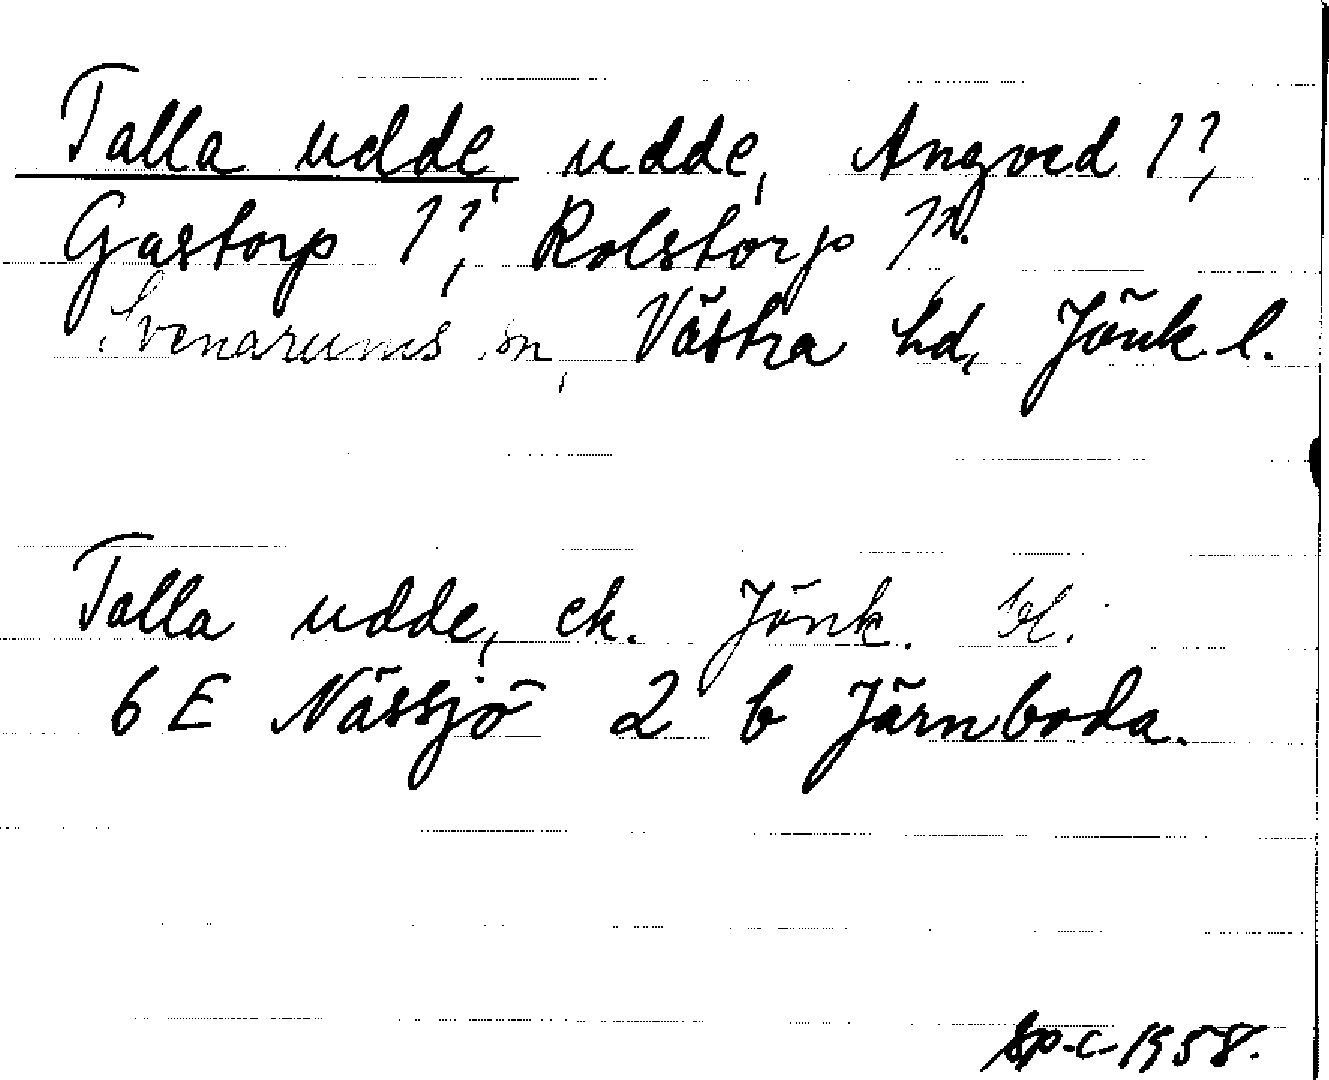 Talla udde, udde, Angved 1?,
Gastorp 1?, Rolstorp 1?.
Svenarums sn, Västra hd, Jönk. l.
Talla udde, ek. Jönk. bl.
6 E Nässjö 2 b Järnboda.
Sp-c- 1958.